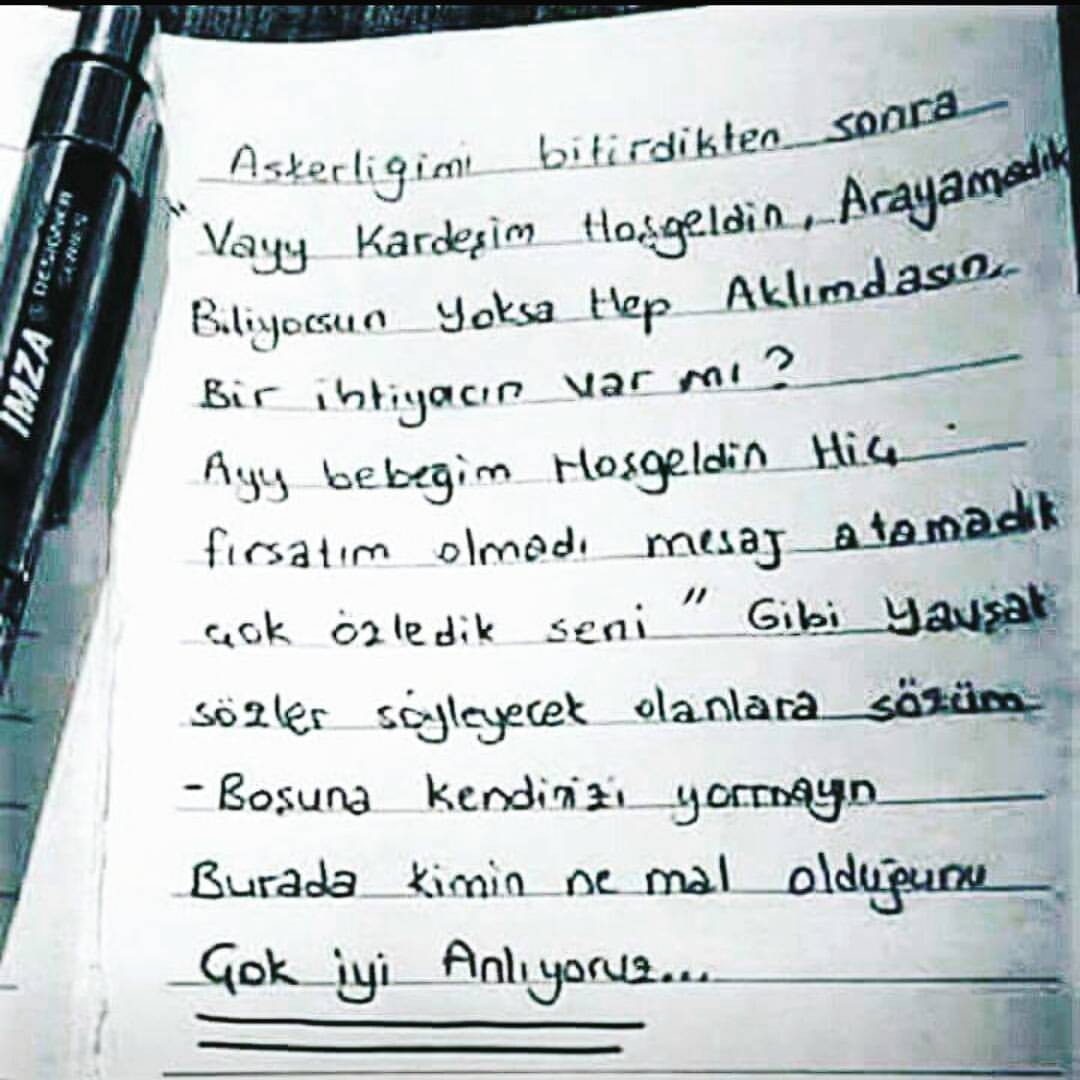 Askerligimi bitirdikten sonra
" Vayy Kardeşim Hoşgeldin, Arayamadık
Biliyorsun Yoksa Hep Aklımdasın
Bir ihtiyacın var mı?
Ayy bebeğim Hoşgeldin Hiç
fırsatım olmadı mesaj atamadık
çok özledik seni " Gibi Yavşak
sözler söyleyecek olanlara sözüm
- Boşuna kendinizi yormayın
Burada kimin ne mal olduğunu
Çok iyi Anlıyoruz...
IMZA DESIGNER SERIES